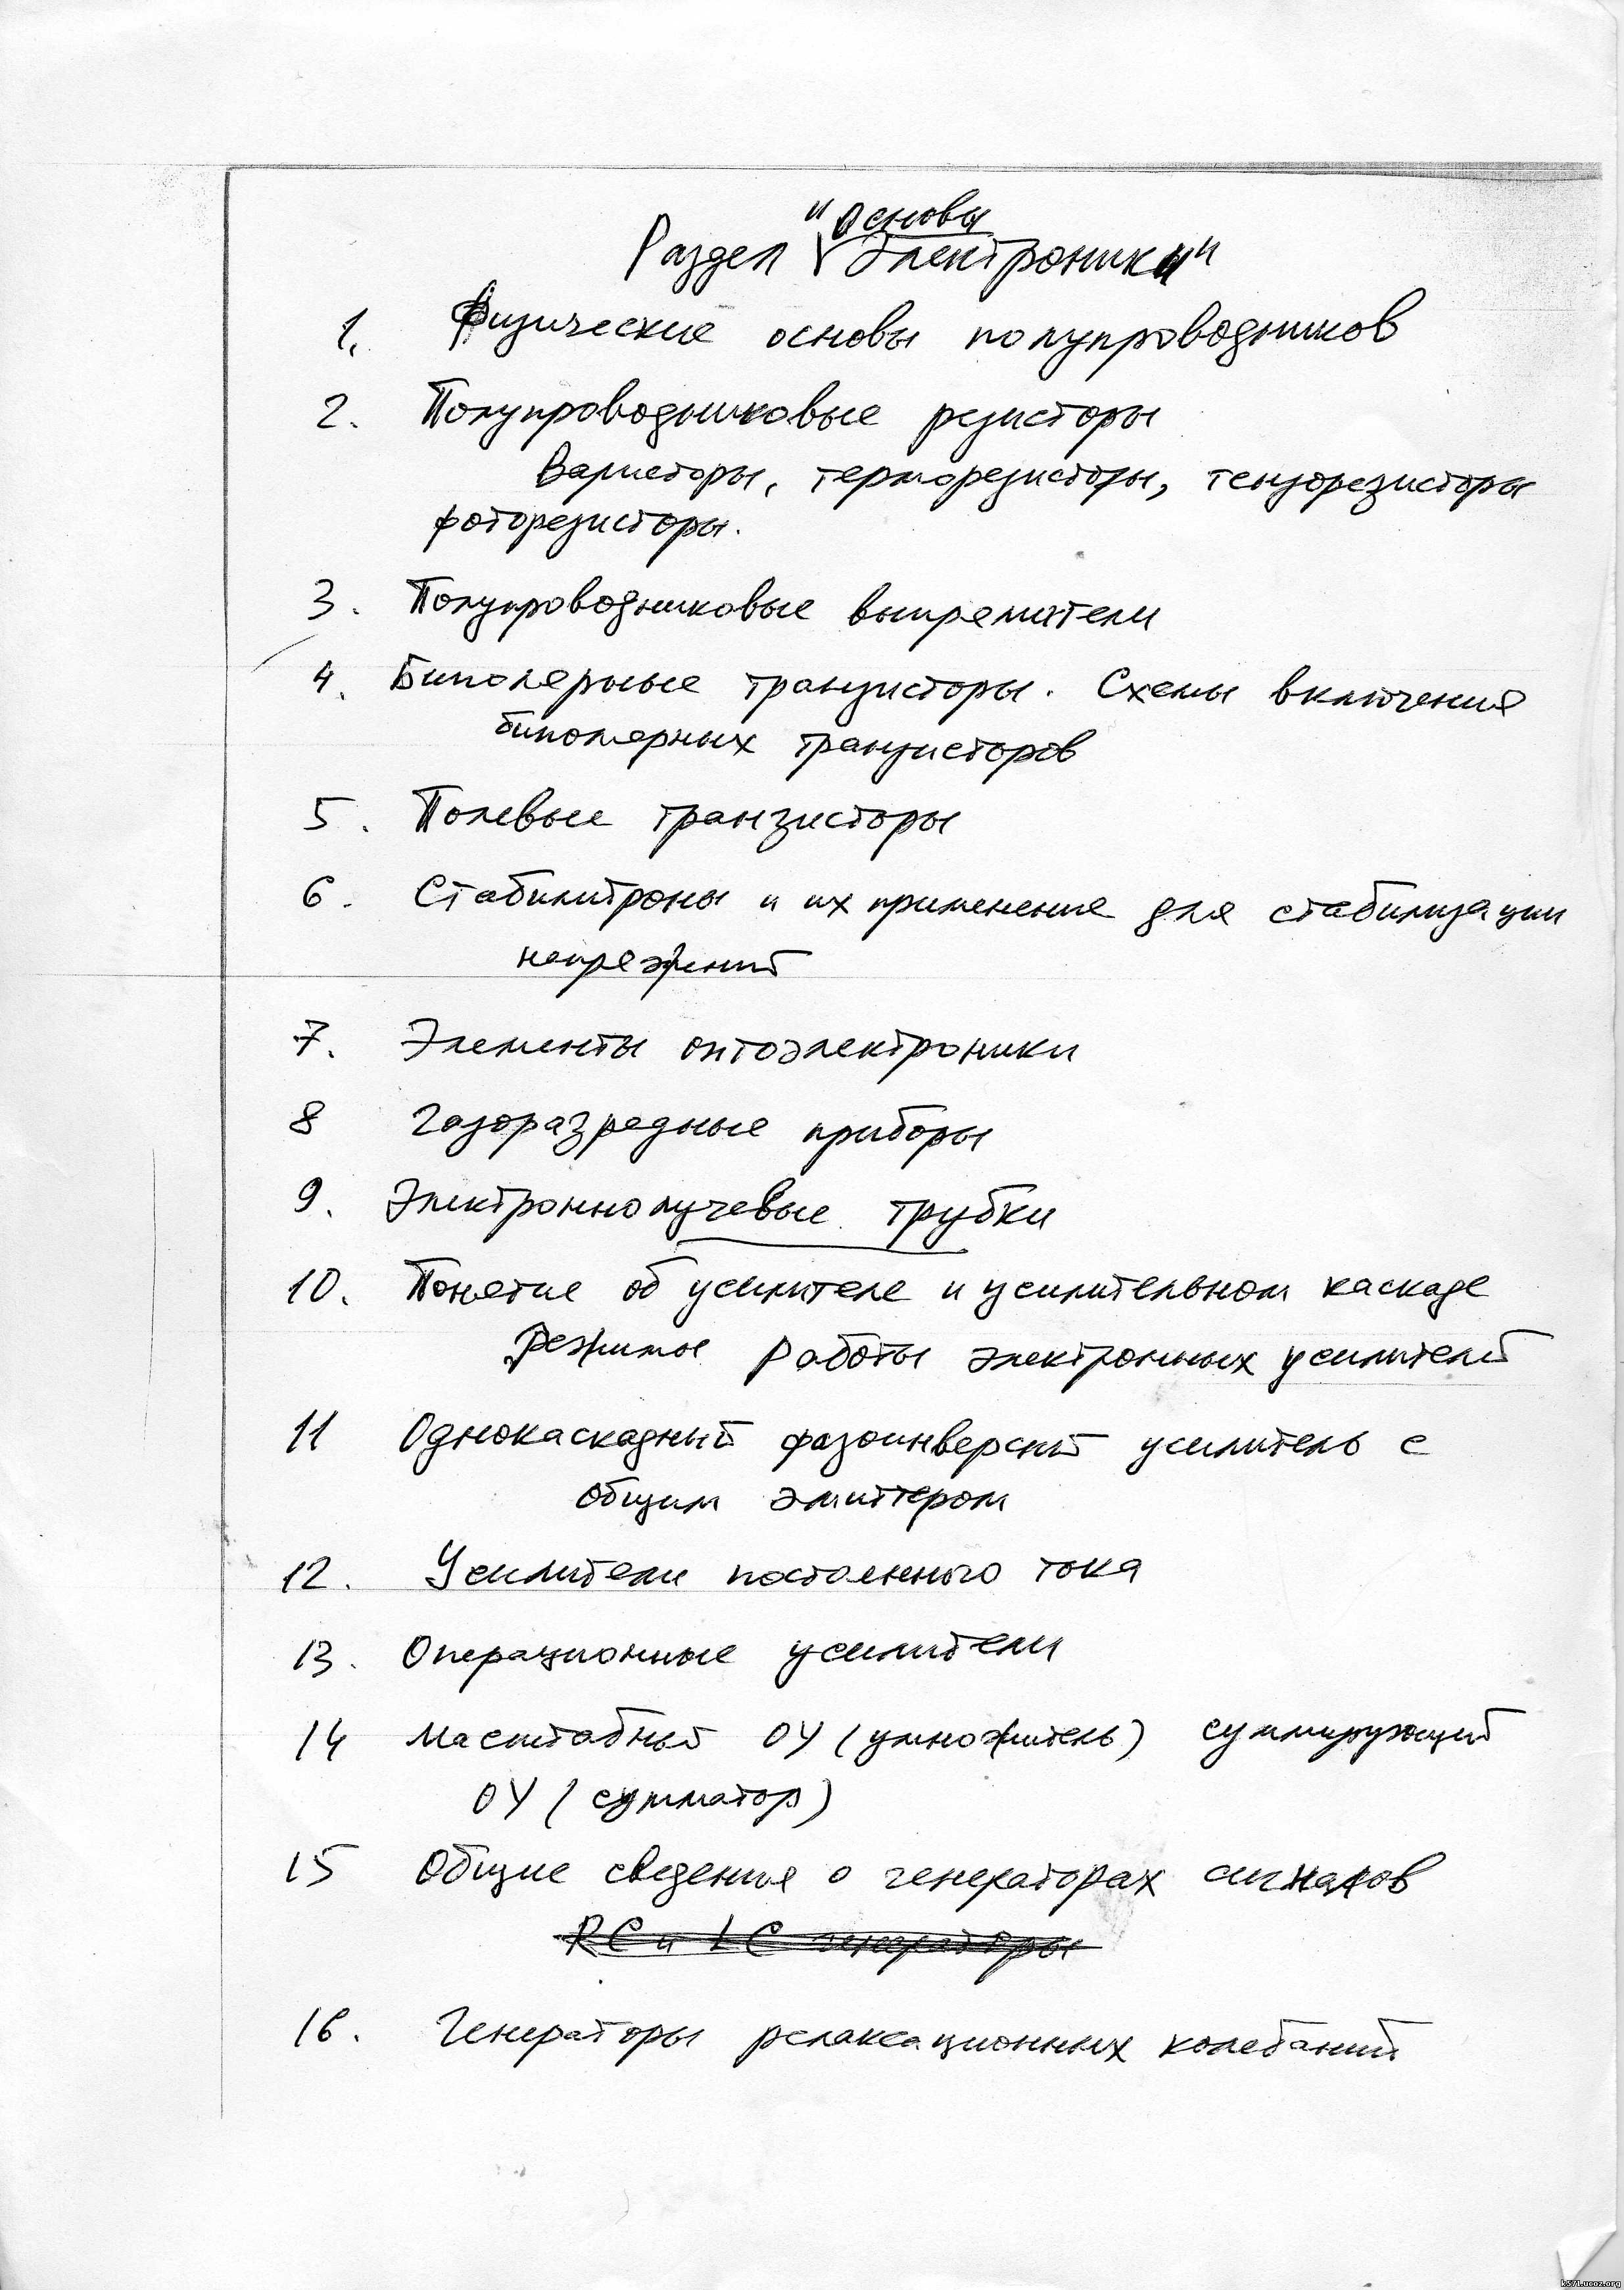 Раздел "Основы электроники"
1. Физические основы полупроводников
2. Полупроводниковые резисторы
Варисторы, терморезисторы, тензорезисторы
фоторезисторы.
3. Полупроводниковые выпрямители
4. Биполярные транзисторы. Схемы включения
биполярных транзисторов
5. Полевые транзисторы
6. Стабилитроны и их применение для стабилизации
напряжений
7. Элементы оптоэлектроники
8 Газоразрядные приборы
9. Электроннолучевые трубки
10. Понятие об усилителе и усилительном каскаде
Режимы работы электронных усилителей
11 Однокаскадный фазоинверсный усилитель с
общим эмиттером
12. Усилители постоянного тока
13. Операционные усилители
14 Масштабный ОУ (умножитель) суммирующий
ОУ (сумматор)
15 Общие сведения о генераторах сигналов
RC и LC генераторы
16. Генераторы релаксационных колебаний
k571.ucoz.org